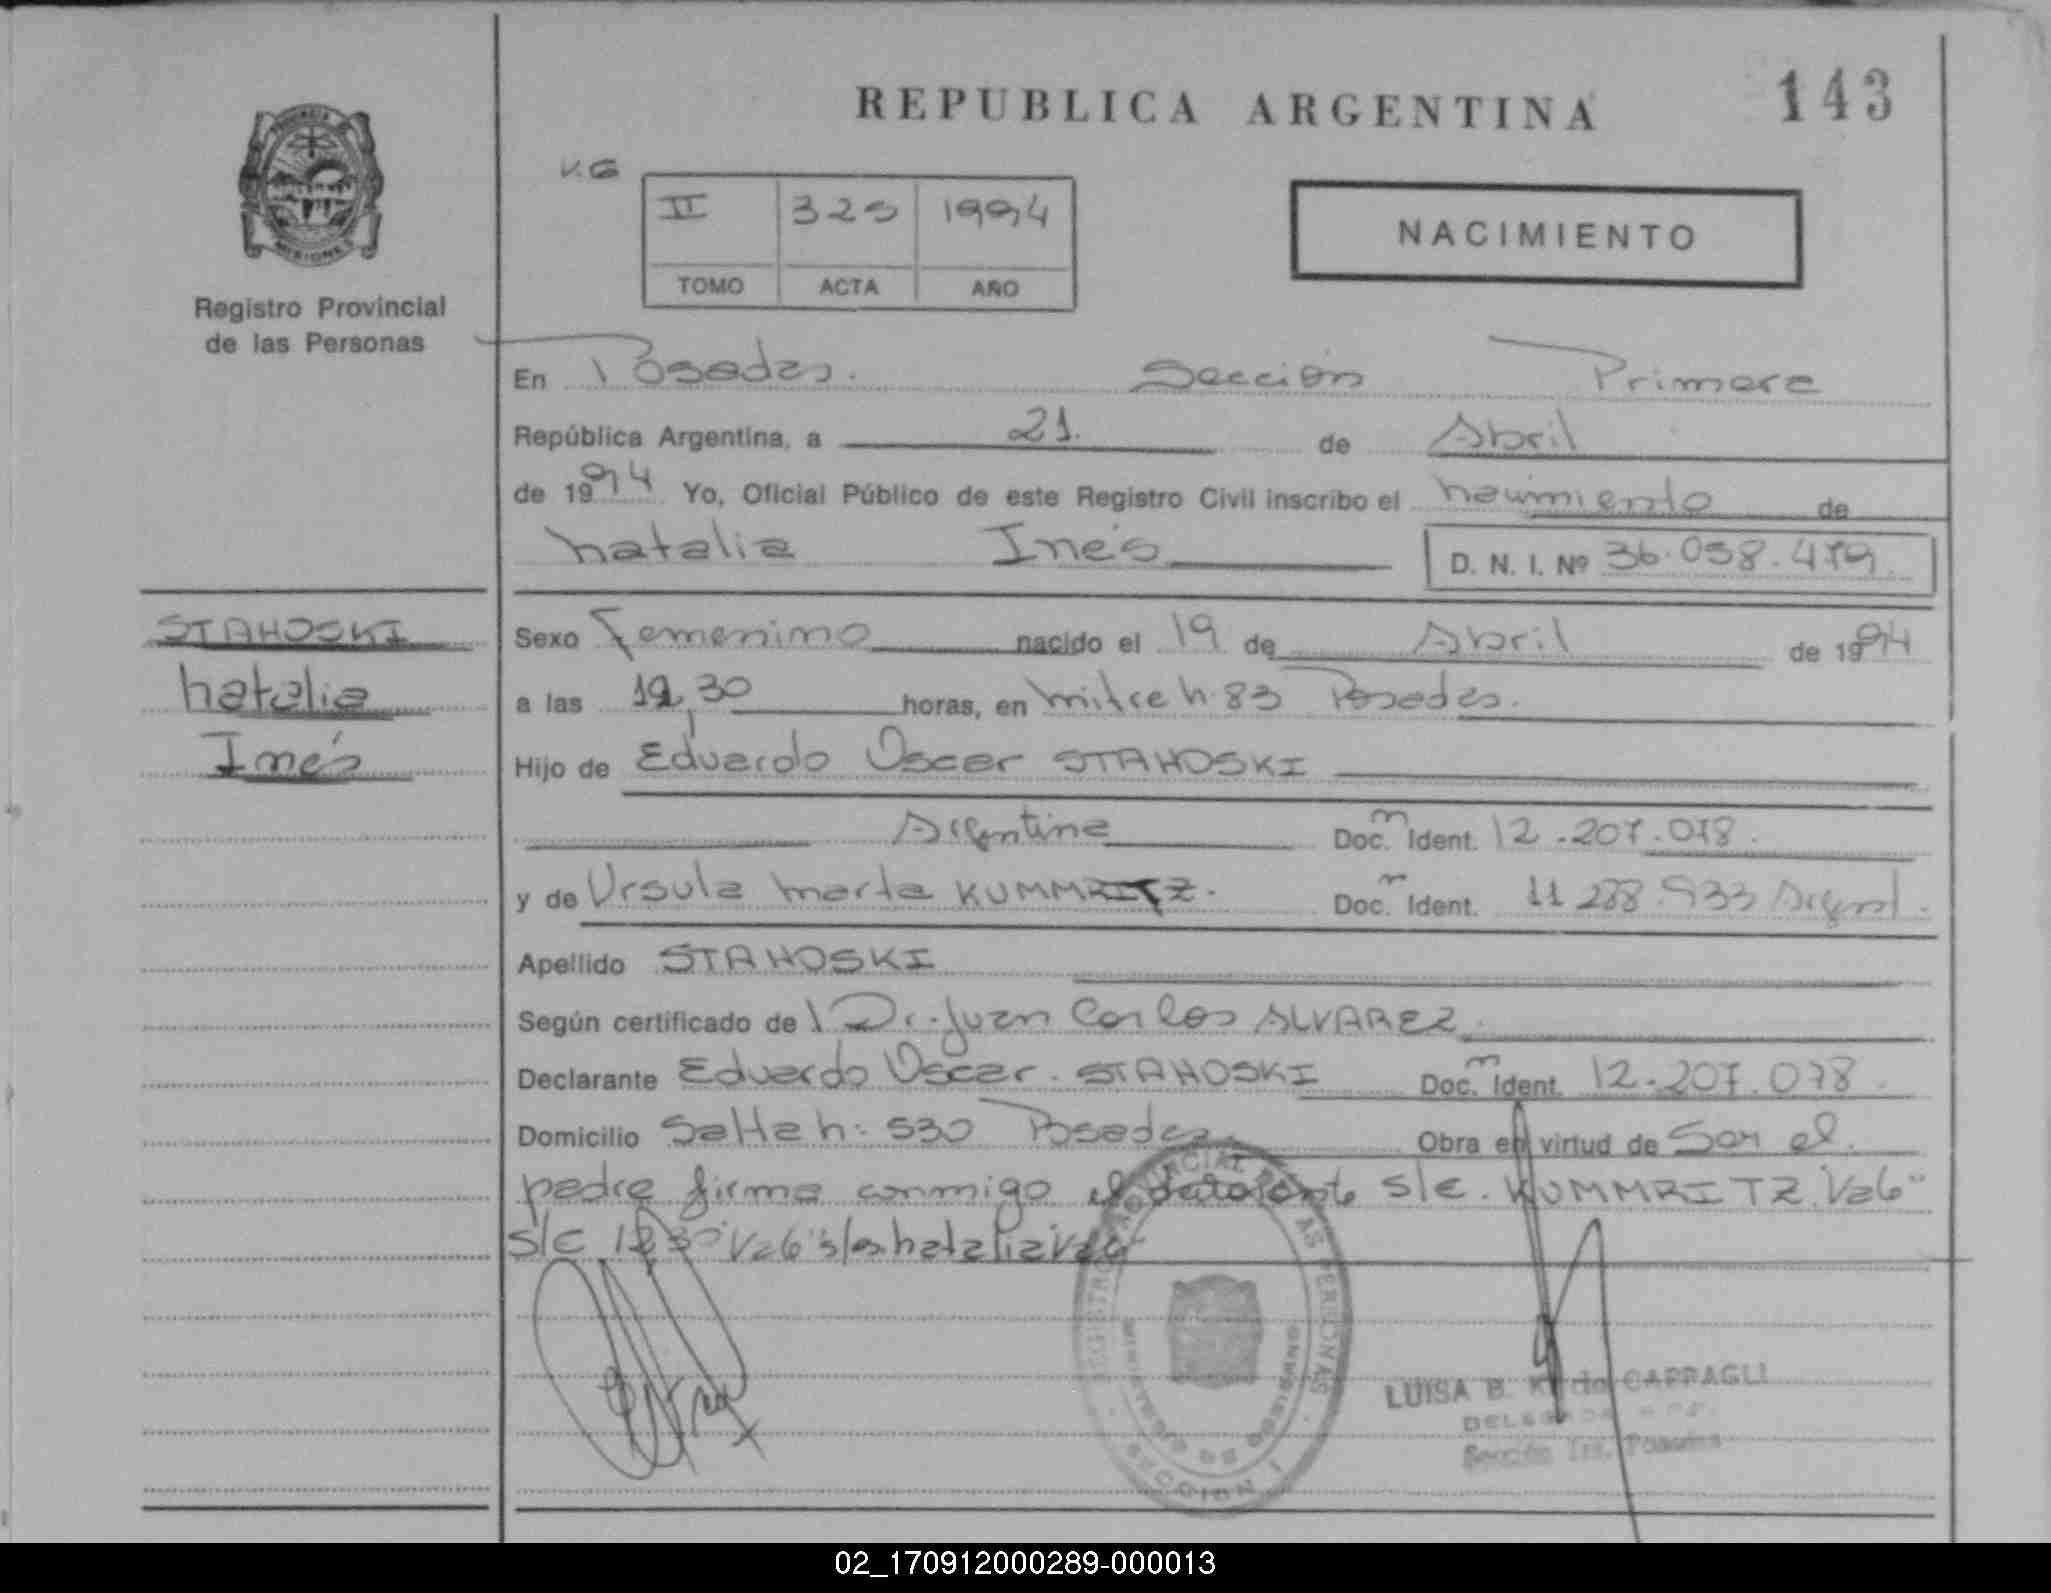 REPUBLICA ARGENTINA
143
V.G
II 325 1994
TOMO ACTA AÑO
NACIMIENTO
PROVINCIA DE
MISIONES
Registro Provincial
de las Personas
En Posadas. Sección Primera
República Argentina, a 21. de Abril
de 1994 Yo, Oficial Público de este Registro Civil inscribo el nacimiento de
Natalia Inés D. N. I. Nº 36.058.479.
STAHOSKI
Natalia
Inés
Sexo Femenino nacido el 19 de Abril de 1994
a las 12,30 horas, en Mitre N. 83 Posadas.
Hijo de Eduardo Oscar STAHOSKI
Argentina Doc. m Ident. 12.207.078.
y de Ursula Marta KUMMRITZ. Doc. m Ident. 11.288.933 Argent.
Apellido STAHOSKI
Según certificado de Dr. Juan Carlos ALVAREZ
Declarante Eduardo Oscar. STAHOSKI Doc. m Ident. 12.207.078.
Domicilio Salta N: 530 Posadas. Obra en virtud de Ser el.
padre firma conmigo el declarante s/e. KUMMRITZ "Vale"
s/e 12,30 "Vale" s/es Natalia Vale
REGISTRO PROVINCIAL DE LAS PERSONAS
MINISTERIO DE GOBIERNO
SECCION I
LUISA B. K. de CAPPAGLI
Sección 1ra. Posadas
02_170912000289-000013